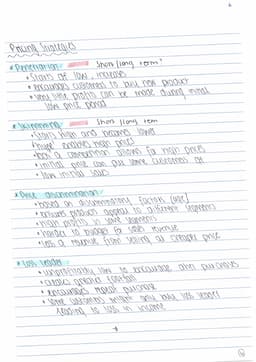 Pricing Strategies
* Penetration short/long term?
• starts off low, increases
• encourages customers to buy new product
• very little profits can be made during initial
low price period
* Skimming short/long term
• starts high and becomes lower
• "hype" enables high prices
• lack of competition allows for high prices
• initial price can put some customers off
• low initial sales
* Price discrimination
• based on discriminatory factors (age)
• ensures product appeal to different segments
• high profits in some segments
• harder to budget for sales revenue
• loss of revenue from selling at cheaper price
* Loss leader
• unprofitably low to encourage other purchases
• creates greater footfall
• encourages repeat purchase
• some customers might only buy loss leader
leading to loss in income